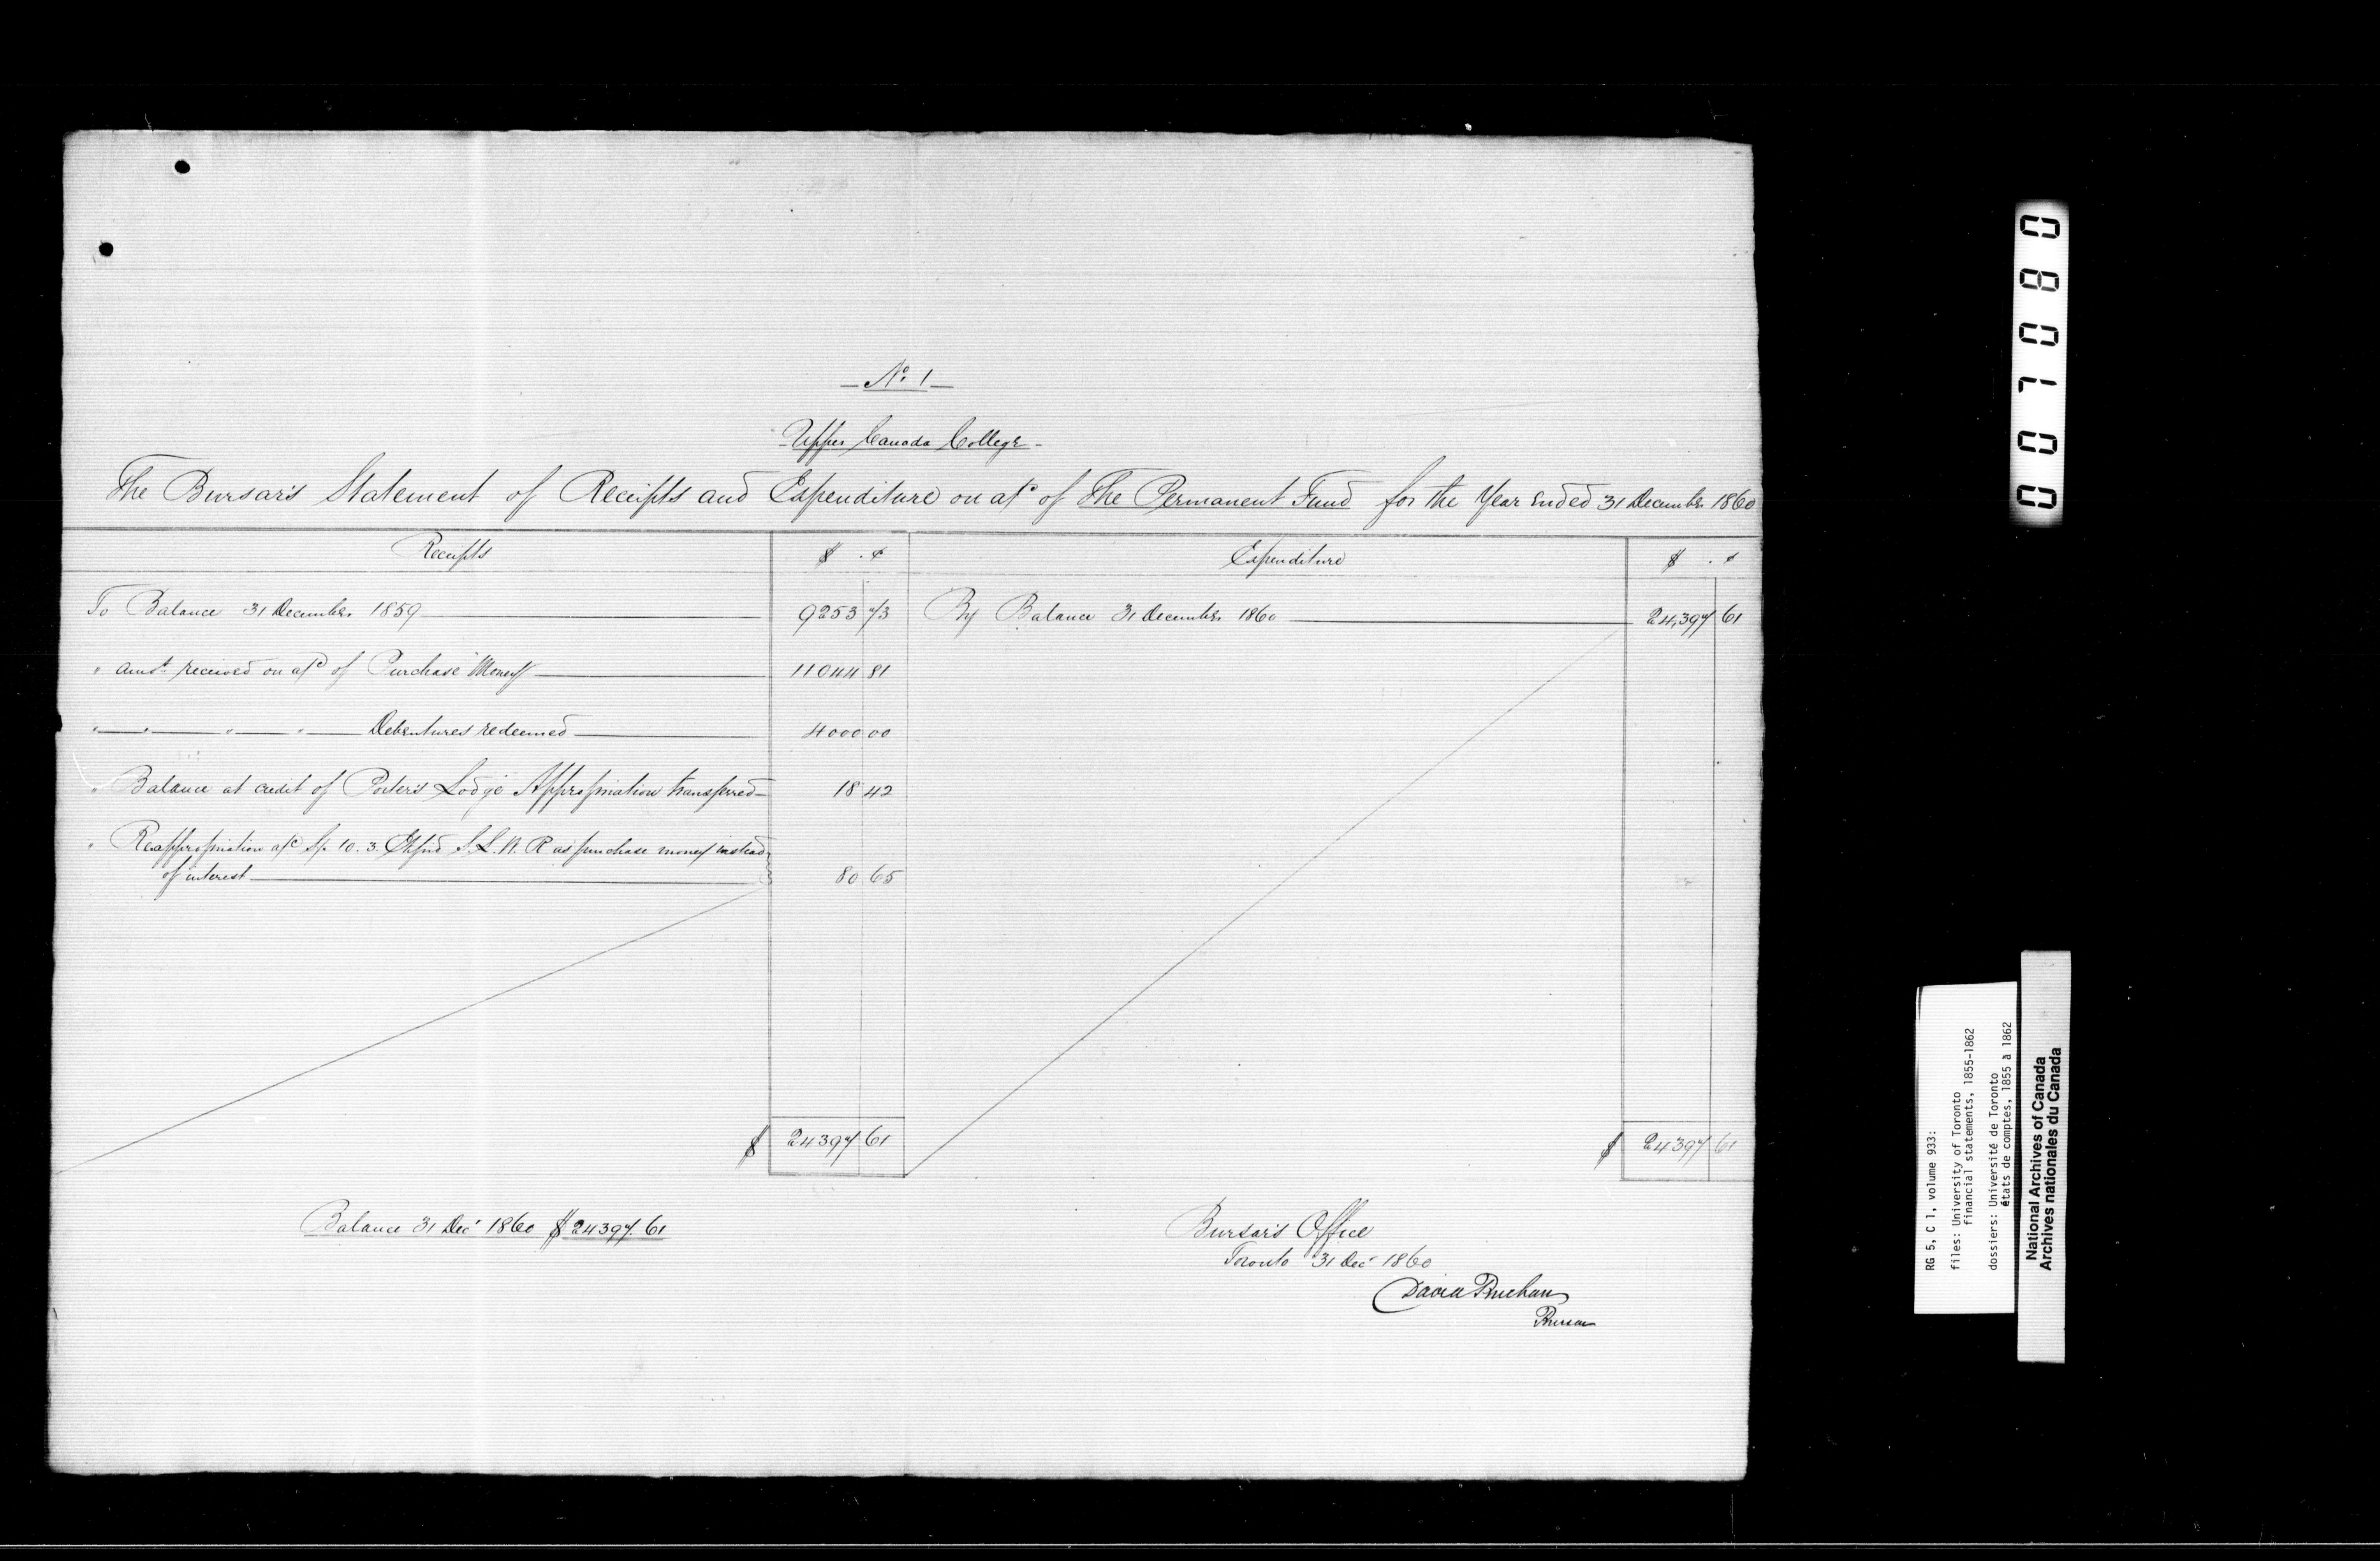 No. 1
Upper Canada College
The Bursar's Statement of Receipts and Expenditure on a/c of The Permanent Fund for the Year ended 31 December 1860
Receipts $ . ¢ Expenditure $ . ¢
To Balance 31 December 1859 9253 73 By Balance 31 December 1860 24,397 61
" amot received on a/c of Purchase Money 11044 81
" " " " Debentures redeemed 4000 00
" Balance at credit of Porter's Lodge Appropriation transferred 18 42
" Reappropriation a/c Sp. 10. 3. S. L. R. R as purchase money instead
of interest 80 65
$ 24397 61 $ 24397 61
Balance 31 Dec 1860 $ 24397.61
Bursar's Office
Toronto 31 Dec 1860
David Buchan
Bursar
0 0 7 0 8 0
RG 5, C 1, volume 933:
files: University of Toronto
financial statements, 1855-1862
dossiers: Université de Toronto
états de comptes, 1855 à 1862
National Archives of Canada
Archives nationales du Canada